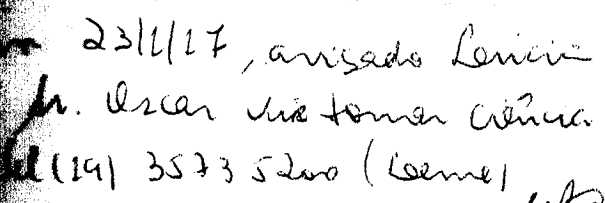 23/1/17, avisado Leninir
Dr. Oscar vir tomar ciência
tel (19) 3573 5200 (Leme)